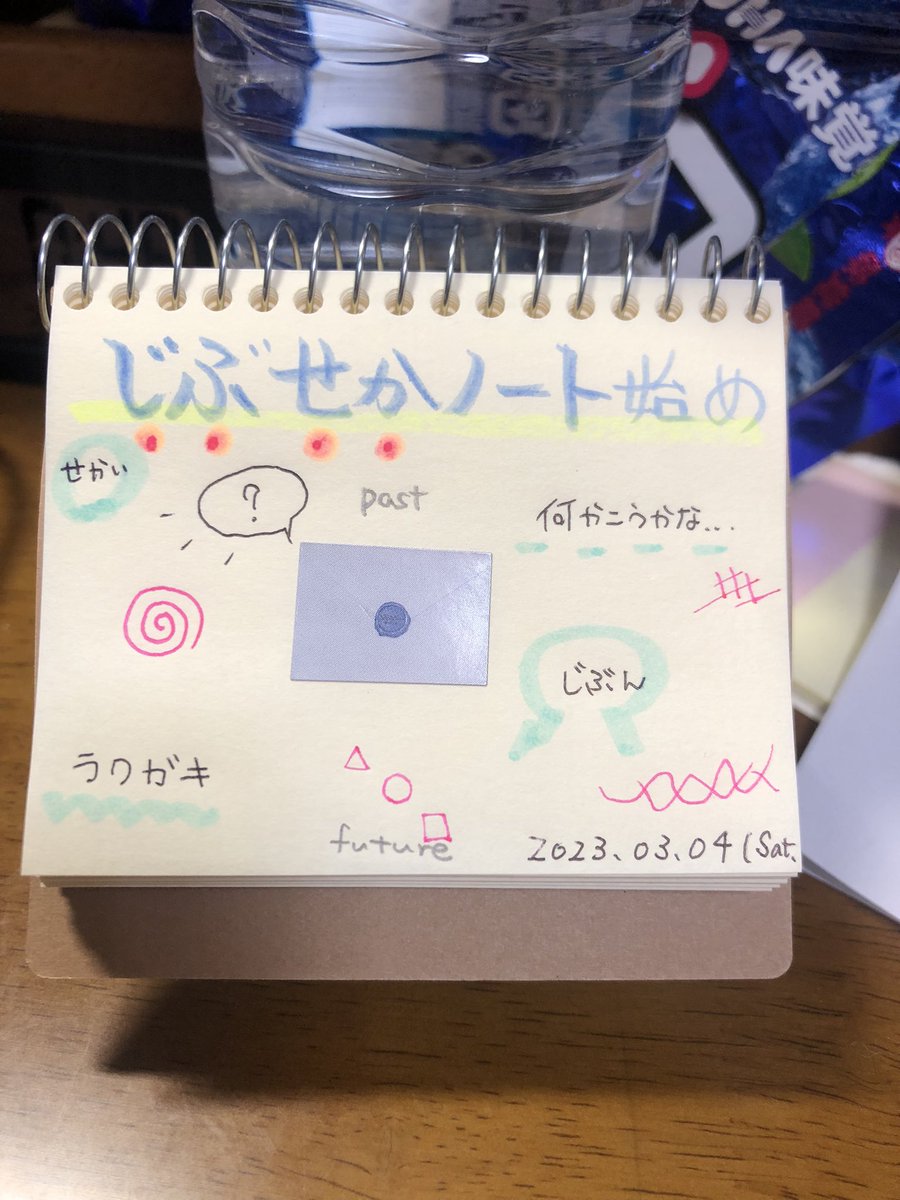 じぶせかノート始め
せかい
?
past
何かこうかな...
じぶん
ラクガキ
future
2023.03.04(Sat.
味覚